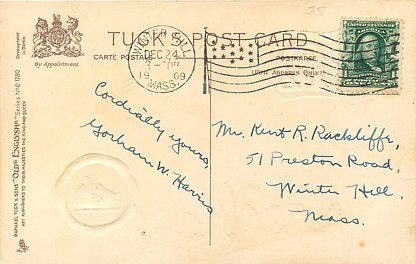 TUCK'S POST CARD
CARTE POSTALE
POSTKARTE
(FOR ADDRESS ONLY)
By Appointment
Chromographed in Berlin.
RAPHAEL TUCK & SONS' "OLD ENGLYSH" Series No C 1780
ART PUBLISHERS TO THEIR MAJESTIES THE KING AND QUEEN
WINTER HILL
DEC 24
1909
MASS.
35
Cordially yours,
Gorham W. Harris
Mr. Kent R. Rackliffe,
51 Preston Road,
Winter Hill,
Mass.